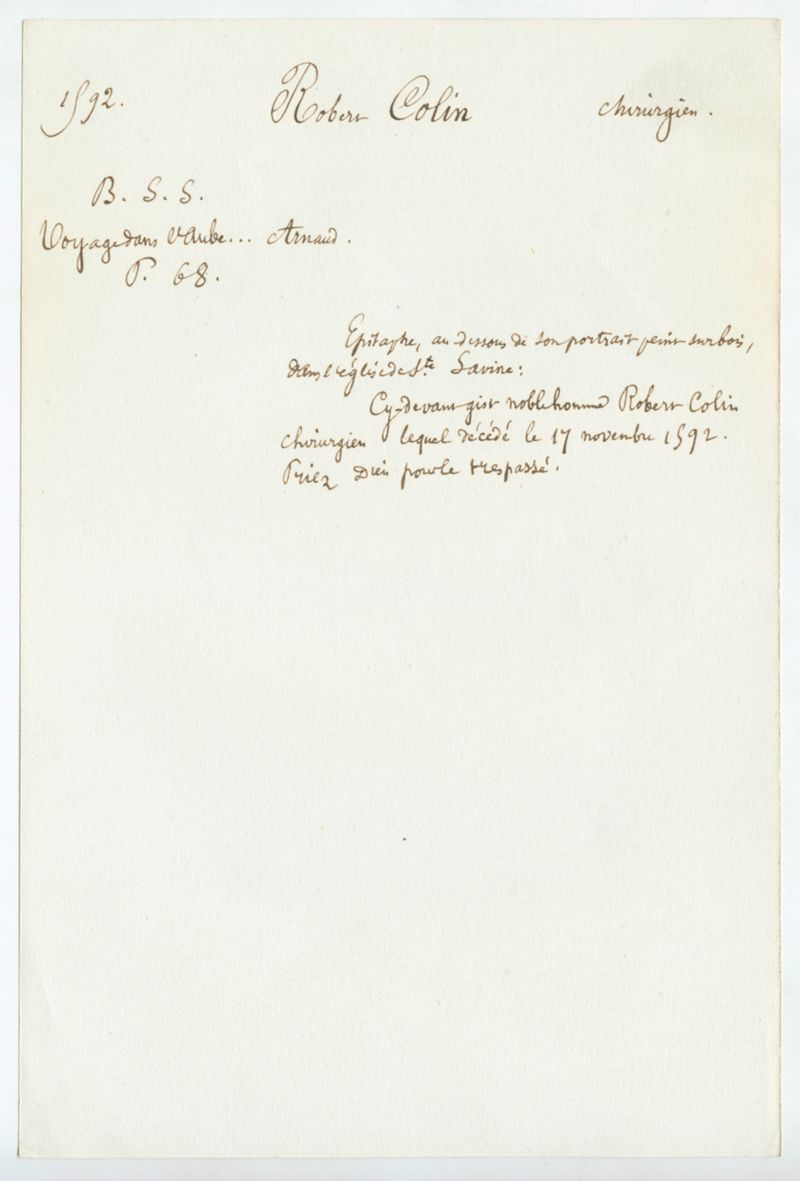 1592. Robert Colin chirurgien.
B. S. S.
Voyage dans l'Aube... Arnaud.
P. 68.
Epitaphe, au-dessous de son portrait peint sur bois,
dans l'église de Ste Savine:
Cy-devant gist noble homme Robert Colin
chirurgien lequel décédé le 17 novembre 1592.
Priez Dieu pour le trespassé.